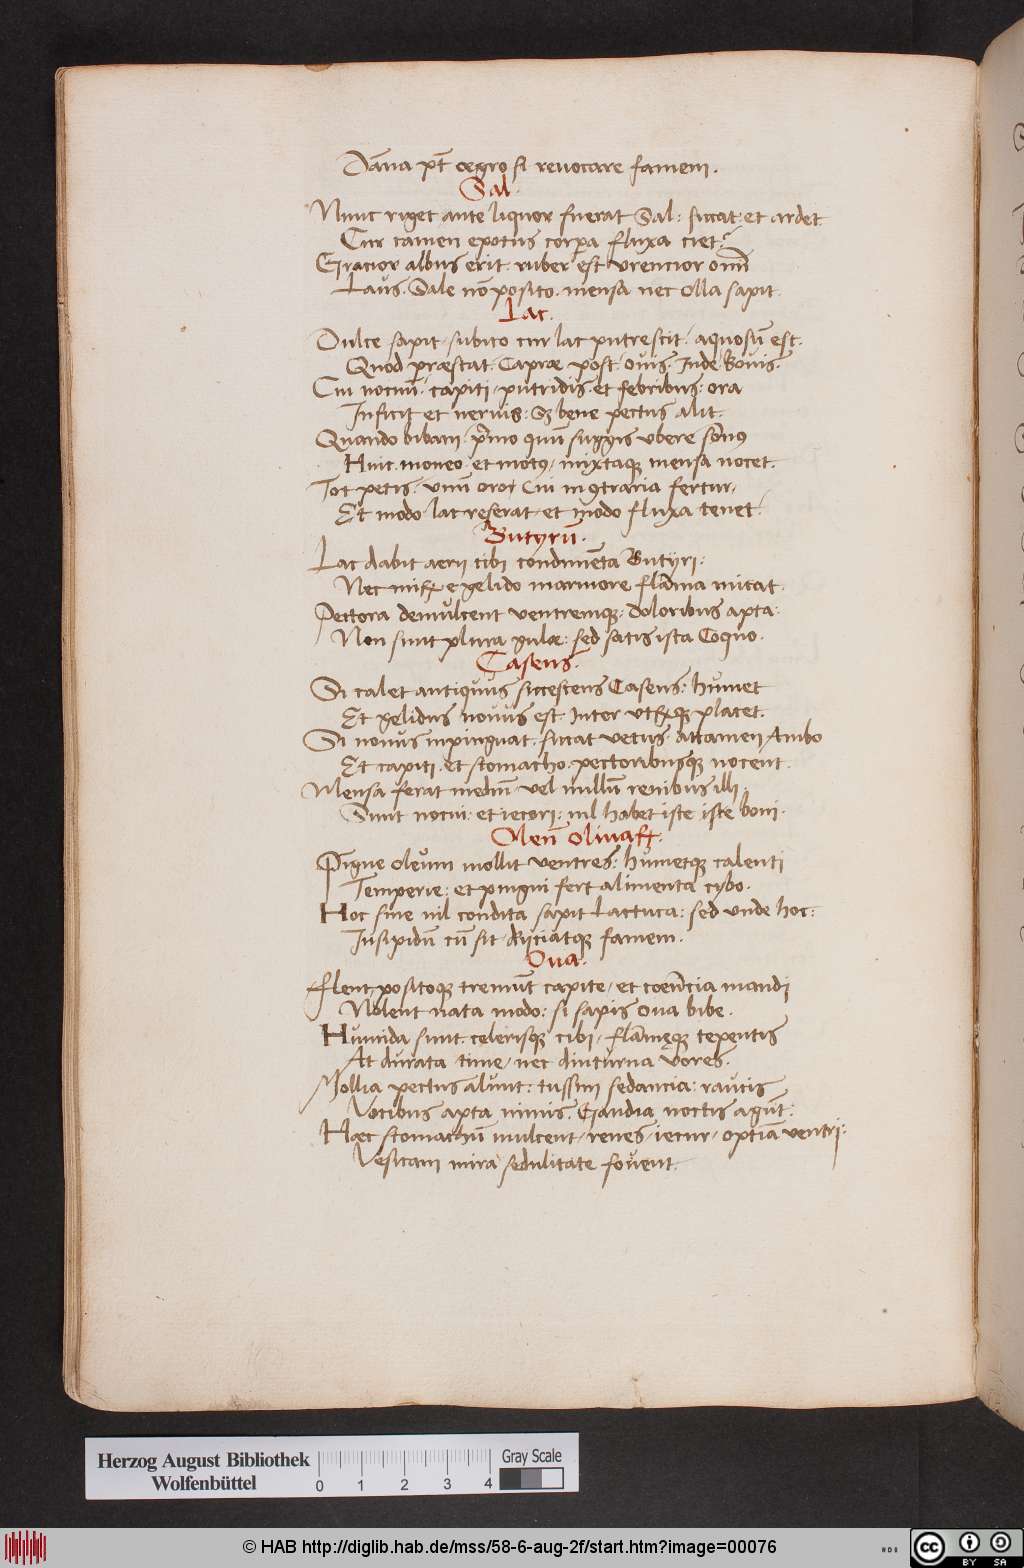 Dāna pt̄ aegro si reuocare famem.
Sal.
Nunc riget ante liquor fuerat Sal: siccat et ardet
Cur tamen epotus corpa fluxa ciet?
Gracior albus erit. ruber est vrencior omī
Laus. Sale nō posito. mensa nec olla sapit.
Lac.
Dulce sapit. subito cur lac putrescit? aquosū est.
Quod praestat. Caprae post. ouis. Inde Bouis.
Cui nocuū? capiti. putridis. et febribus: ora
Inficit et neruis: Sz bene pectus alit.
Quando bibam? pͥmo quū suggis vbere somnꝰ
Huic. moneo. et motꝰ, mixtaqꝫ mensa nocet.
Tot petis. vnū oro, Cui in ꝯtraria fertur,
Et modo lac reserat, et modo fluxa tenet?
Butyrū.
Lac dabit aerii tibi condimēta Butÿri:
Nec mirꝝ e gelido marmore flāma micat.
Pectora demulcent ventremqꝫ. doloribus apta:
Non sunt plura gulae: sed satis ista Coquo.
Caseus.
Si calet antiquus siccescens Caseus: humet
Et gelidus nouus est. Inter vtrꝝqꝫ placet.
Si nouus inpinguat. siccat vetus. attamen Ambo
Et capiti. et stomacho. pectoribusqꝫ nocent.
Mensa ferat mediū, vel nullū renibus illi
Sunt nocui: et iecori: nil habet iste iste boni.
Oleū Oliuaꝝ.
Pigue oleum mollit ventres: humetqꝫ calenti
Temperie: et pingui fert alimenta cybo.
Hoc sine nil condita sapit Lactuca: sed vnde hoc:
Insipidū cū sit. Rijciatqꝫ famem.
Oua.
Flent positoqꝫ tremūt capite, et coēūcia mandi
Nolent nata modo: si sapis oua bibe.
Humida sunt. celerisqꝫ cibi, flāmęqꝫ tepentis
At durata time, nec diuturna vores.
Mollia pectus alunt: tussim sedancia: raucis
Vocibus apta nimis. Gaudia noctis agūt:
Haec stomachū mulcent, renes, iecur, optīa ventri:
Vesicam mira sedulitate fouent.
Herzog August Bibliothek
Wolfenbüttel
0 1 2 3 4
Gray Scale
© HAB http://diglib.hab.de/mss/58-6-aug-2f/start.htm?image=00076
cc BY SA